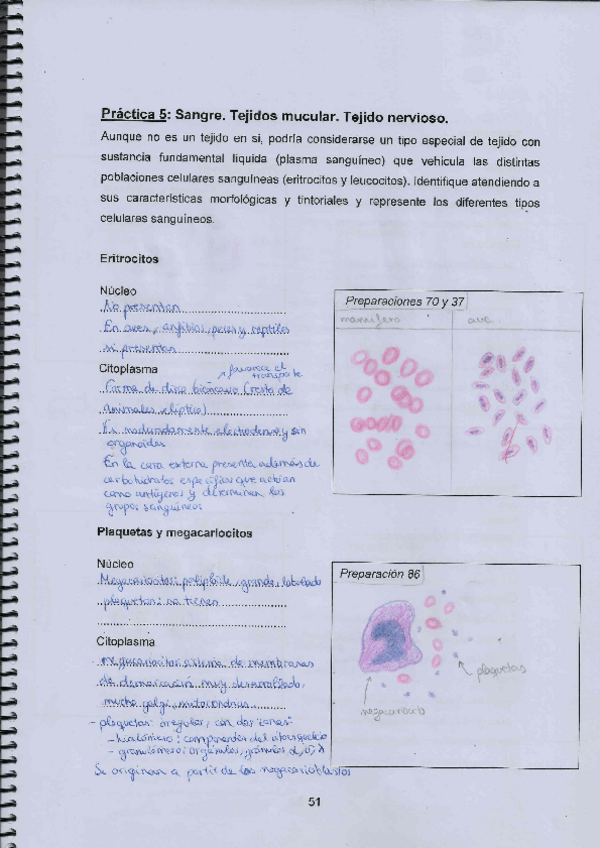 Práctica 5: Sangre. Tejidos mucular. Tejido nervioso.
Aunque no es un tejido en si, podría considerarse un tipo especial de tejido con
sustancia fundamental líquida (plasma sanguíneo) que vehicula las distintas
poblaciones celulares sanguíneas (eritrocitos y leucocitos). Identifique atendiendo a
sus características morfológicas y tintoriales y represente los diferentes tipos
celulares sanguíneos.
Eritrocitos
Núcleo
No presentan
En aves, anfibios, peces y reptiles
si presentan
Citoplasma
favorece el
transporte
Forma de disco bicóncavo (resto de
animales elíptico)
Es moderadamente electrodenso y sin
organoides
En la cara externa presenta además de
carbohidratos específicos que actúan
como antígenos y determinan los
grupos sanguíneos
Preparaciones 70 y 37
mamífero
ave
Plaquetas y megacariocitos
Núcleo
Megacariocitos: poliploide, grande, lobulado
plaquetas: no tienen
Citoplasma
megacariocitos: sistema de membranas
de demarcación muy desarrollado,
mucho golgi, mitocondrias
- plaquetas: irregular, con dos zonas:
- hialómero: componentes del citoesqueleto
- granulómero: orgánulos, gránulos α, δ, λ
Se originan a partir de los megacarioblastos
Preparación 86
plaquetas
megacariocito
51